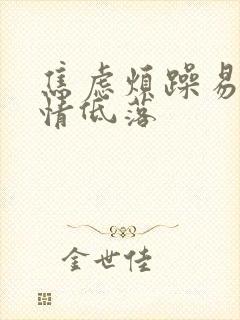 焦虑烦躁易
情低落
金世佳